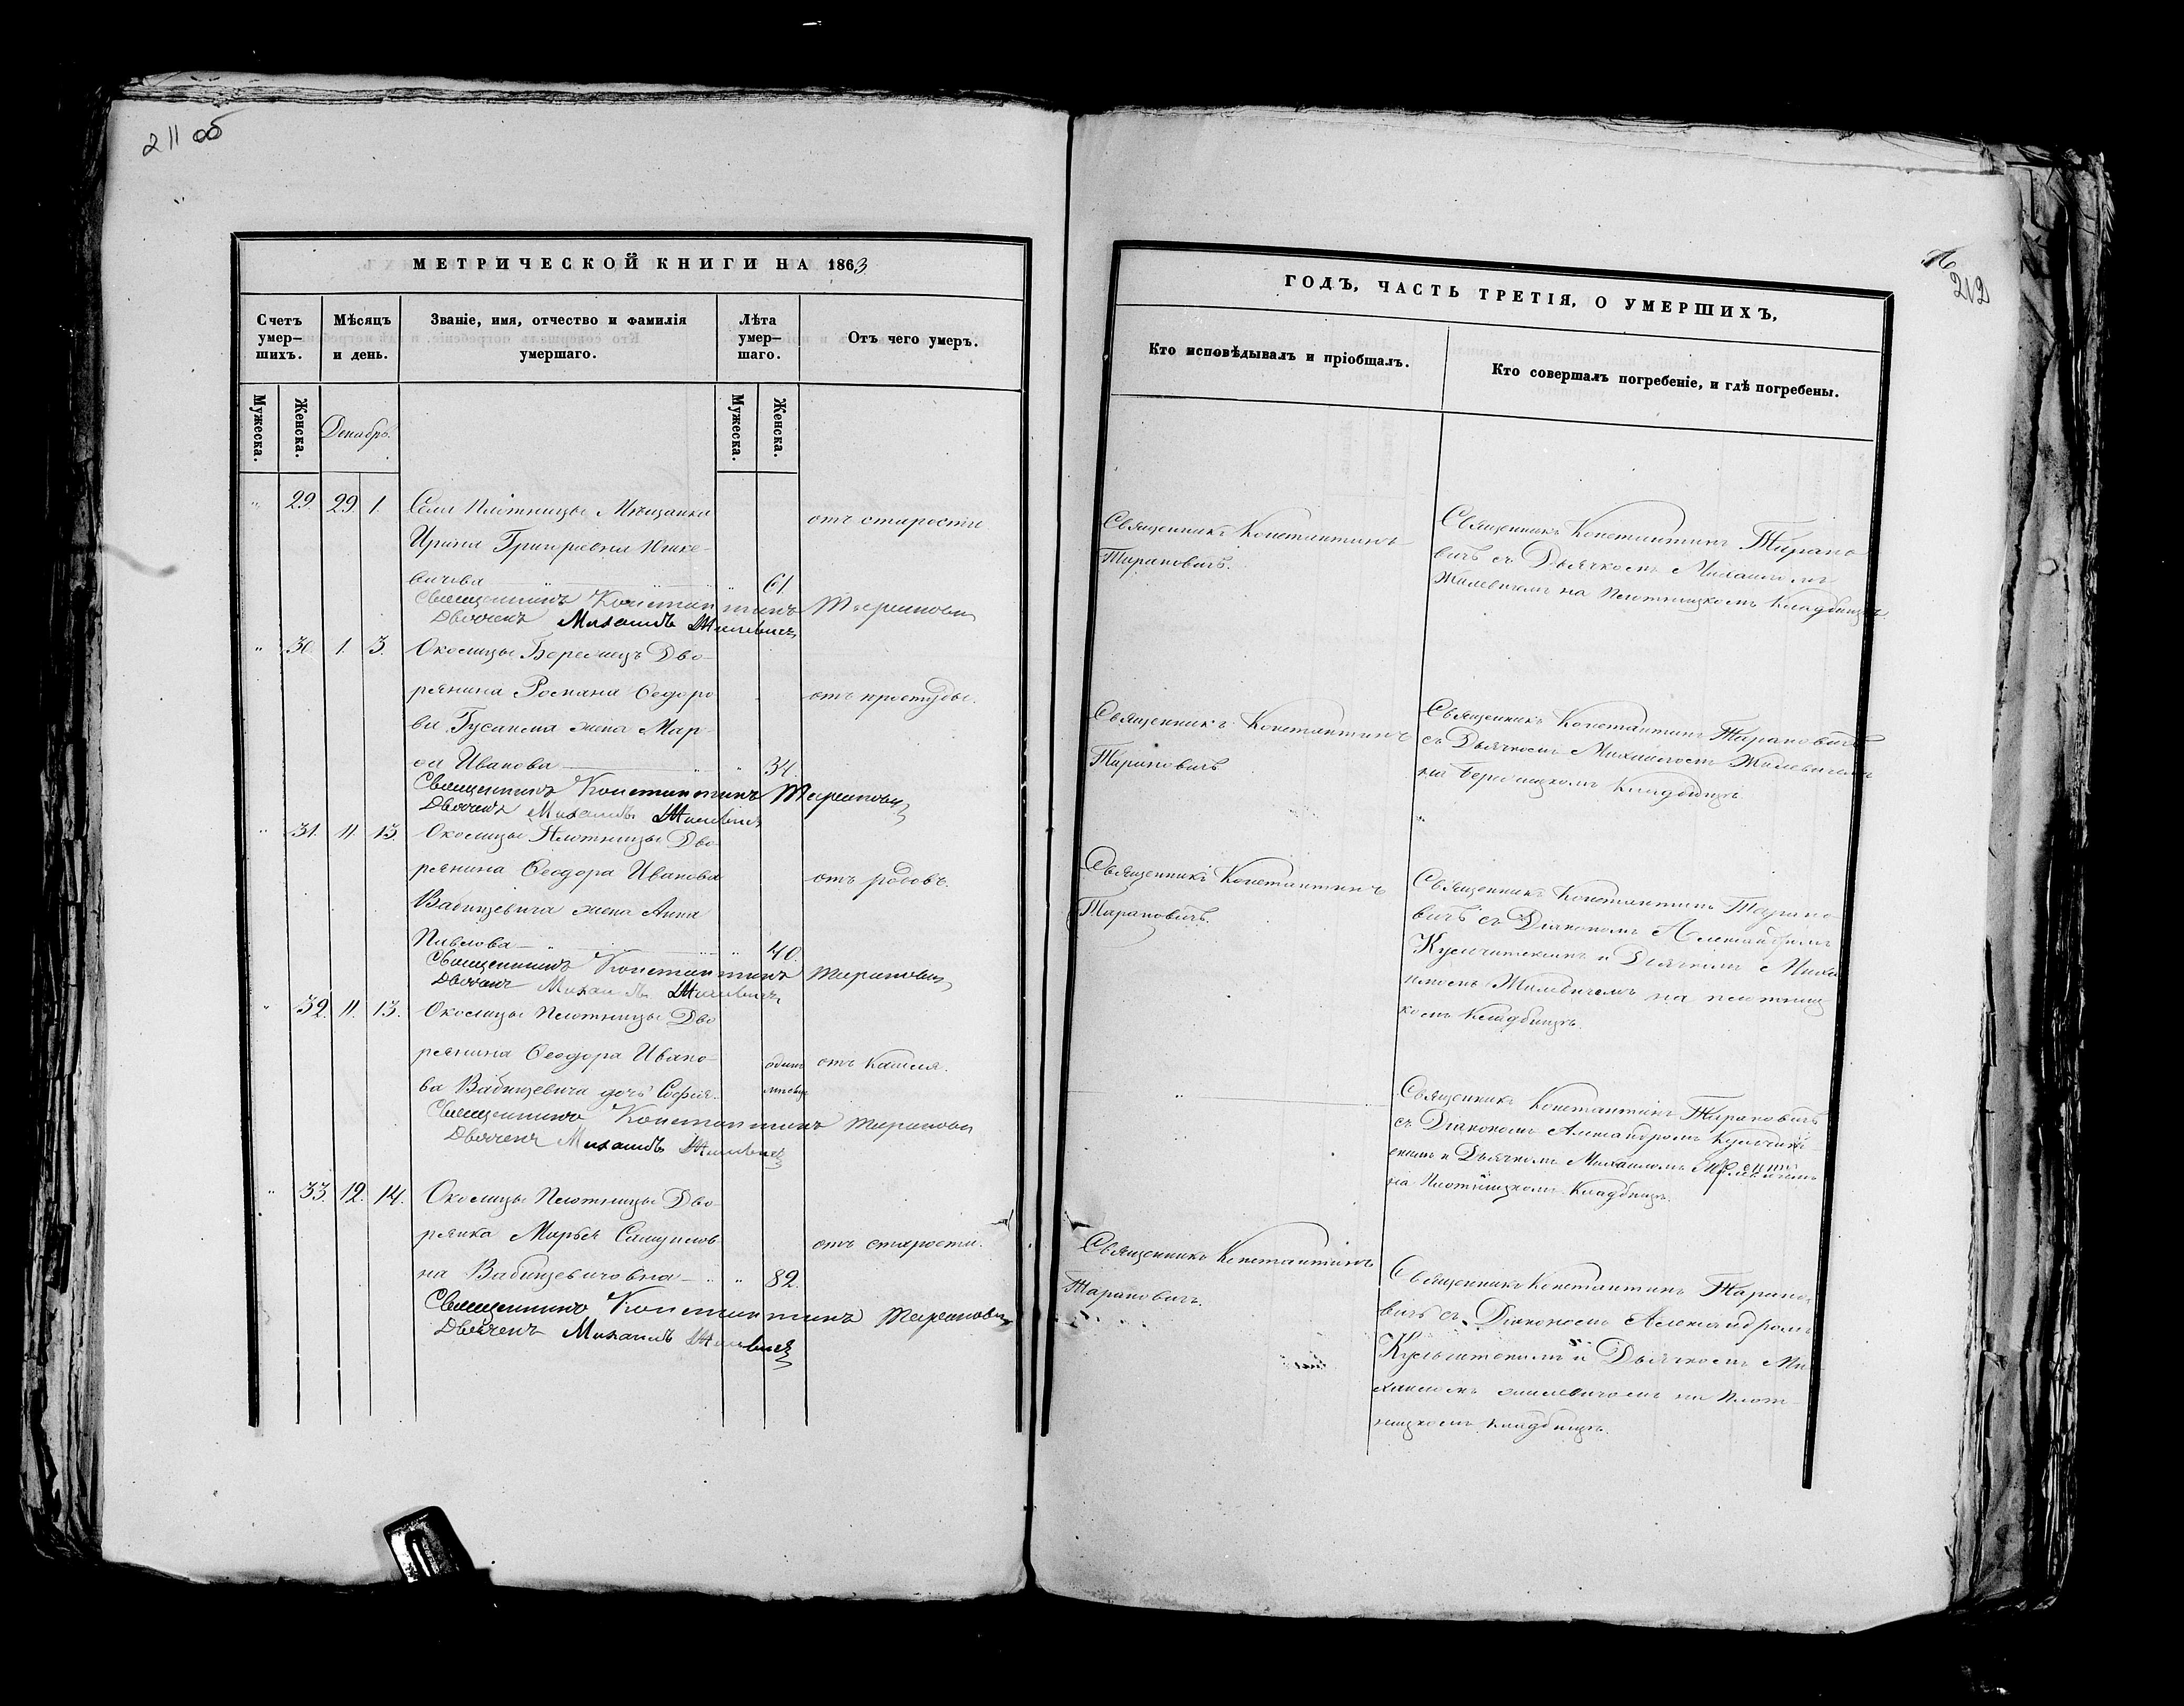 211 об
МЕТРИЧЕСКОЙ КНИГИ НА 1863
Счетъ умер-шихъ.
Мѣсяцъ и день.
Званіе, имя, отчество и фамилія умершаго.
Лѣта умер-шаго.
Отъ чего умеръ.
Мужеска.
Женска.
Декабрь.
Мужеска.
Женска.
" 29. 29 1. Села Плотницы Мѣщанка
отъ старости
Ирина Григорьевна
вичева " 61.
Священникъ Константинъ Тарановичъ
Дьячекъ Михаилъ Жилевичъ
" 30. 1. 3. Околицы Бережицъ Дво-
рянина Романа Ѳеодоро
отъ простуды.
ва Гусакова жена Мар-
ѳа Иванова " 34.
Священникъ Константинъ Тарановичъ
Дьячекъ Михаилъ Жилевичъ
" 31. 11. 13. Околицы Плотницы Дво
рянина Ѳеодора Иванова
отъ родовъ.
Вабищевича жена Анна
Павлова " 40.
Священникъ Константинъ Тарановичъ
Дьячекъ Михаилъ Жилевичъ
" 32. 11. 13. Околицы Плотницы Дво
рянина Ѳеодора Ивано-
одинъ
отъ кашля.
ва Вабищевича дочь Софія.
мѣсяцъ
Священникъ Константинъ Тарановичъ
Дьячекъ Михаилъ Жилевичъ
" 33. 12. 14. Околицы Плотницы Дво
рянка Марья Самуилов
отъ старости.
на Вабищевичовна " 82.
Священникъ Константинъ Тарановичъ
Дьячекъ Михаилъ Жилевичъ
212
ГОДЪ, ЧАСТЬ ТРЕТІЯ, О УМЕРШИХЪ,
Кто исповѣдывалъ и пріобщалъ.
Кто совершалъ погребеніе, и гдѣ погребены.
Священникъ Константинъ
Тарановичъ.
Священникъ Константинъ Тарано
вичъ съ Дьячкомъ Михаиломъ
Жилевичемъ на Плотницкомъ Кладбищѣ
Священникъ Константинъ
Тарановичъ
Священникъ Константинъ Тарановичъ
съ Дьячкомъ Михаиломъ Жилевичемъ
на Бережицкомъ Кладбищѣ.
"
Священникъ Константинъ
Тарановичъ.
Священникъ Константинъ Тарано
вичъ съ Діакономъ Александромъ
Кульчитскимъ и Дьячкомъ Миха
иломъ Жилевичемъ на плотниц
комъ Кладбищѣ.
"
Священникъ Константинъ Тарановичъ
съ Діакономъ Александромъ Кульчит
скимъ и Дьячкомъ Михаиломъ Жилевичемъ
на Плотницкомъ Кладбищѣ.
Священникъ Константинъ
Тарановичъ.
Священникъ Константинъ Тарано
вичъ съ Діакономъ Александромъ
Кульчитскимъ и Дьячкомъ Ми
хаиломъ Жилевичемъ на Плот-
ницкомъ кладбищѣ.